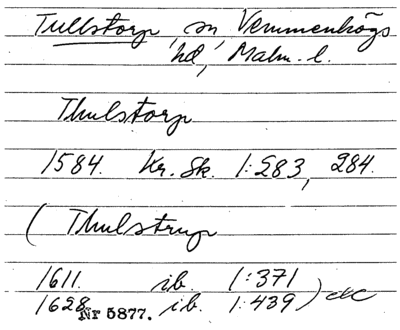 Tullstorp, sn, Vemmenhögs
hd, Malm. l.
Thulstorp
1584. Kr. Sk. 1:283, 284.
(Thulstrup
1611. ib. 1:371
1628 ib. 1:439) etc
Nr 5877.